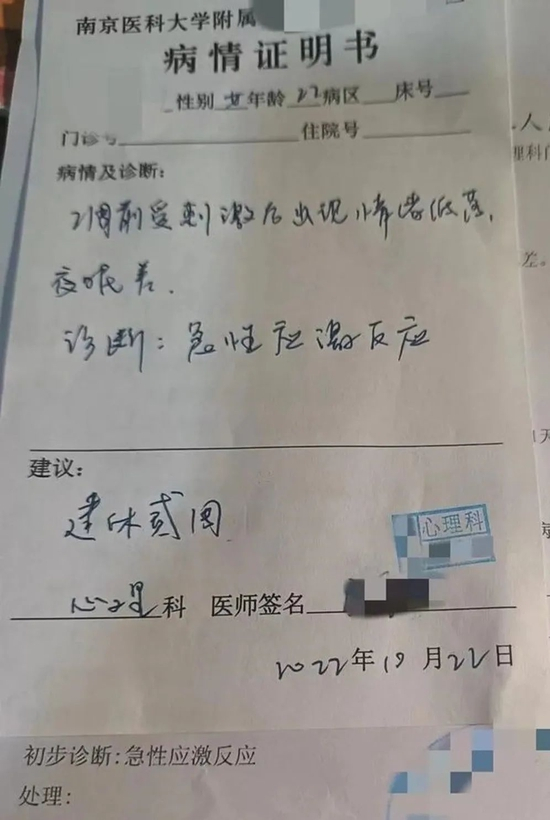 南京医科大学附属
病情证明书
性别 女 年龄 22 病区 床号
门诊号 住院号
病情及诊断:
2周前受刺激后出现情绪低落,
夜眠差.
诊断: 急性应激反应
建议:
建休贰周
心理科
心理科 医师签名
2022年10月22日
初步诊断:急性应激反应
处理:
人
理科门
差。
天